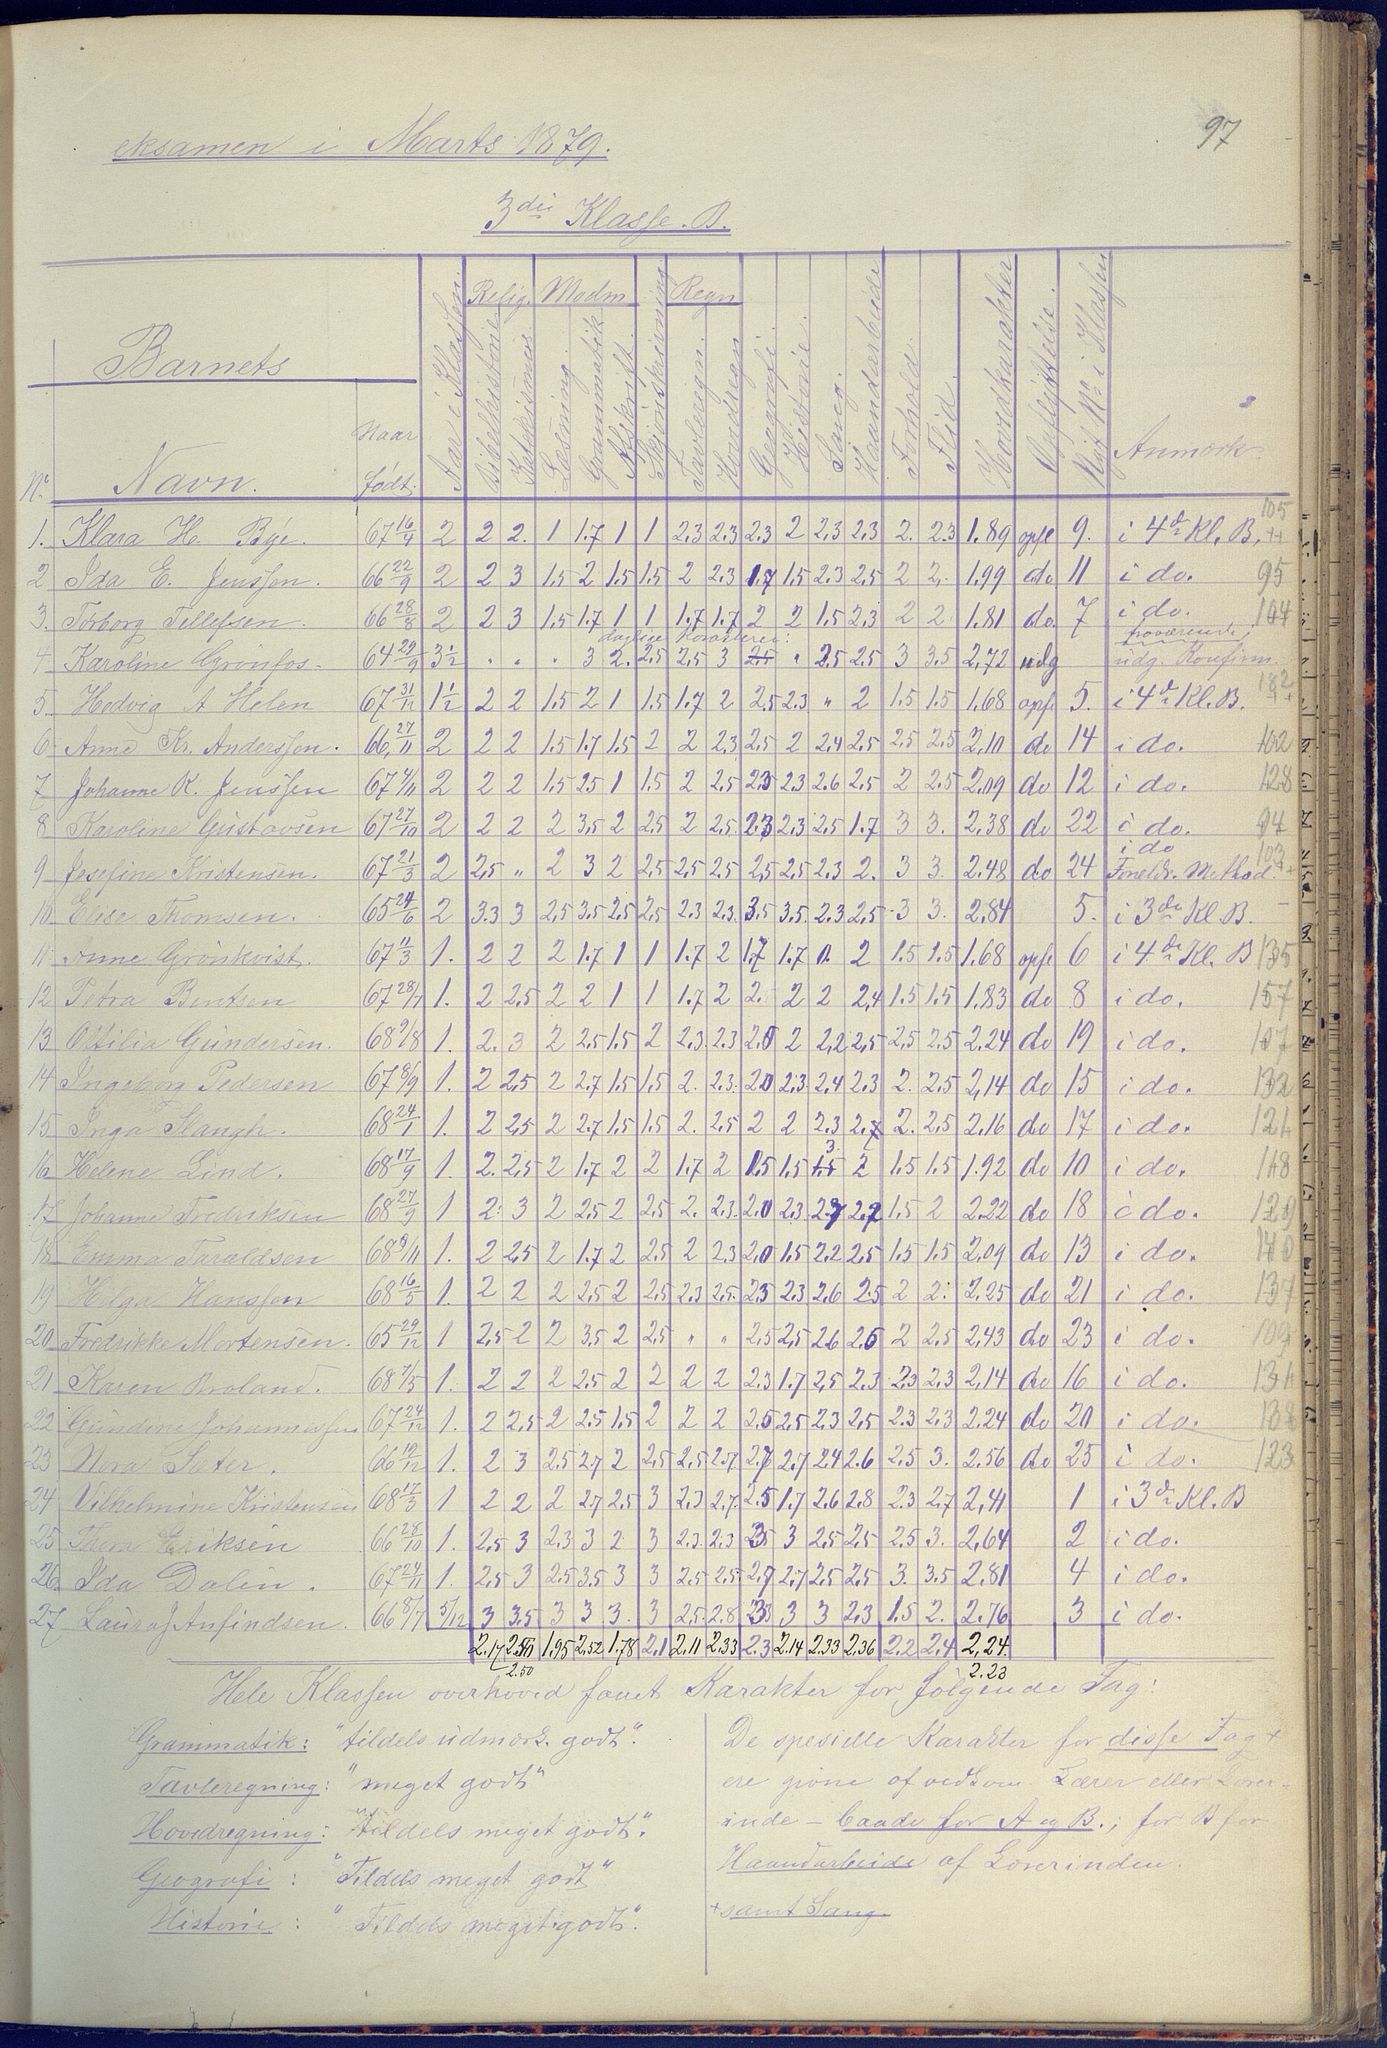 97
eksamen i Marts 1879.
3die Klasse. B.
Barnets
Nr. Navn. Naar født. Aar i Klassen. Relig. Bibelhistorie Katekismus Modm Læsning Grammatik Afskrift Skjönskrivning Regn Tavleregn. Hovedregn Geografi. Historie. Sang. Haandarbeide Forhold. Flid. Hovedkarakter Opflyttelse. Nyt No i Klassen Anmærk.
1. Klara H. Bye. 67 16/4 2 2 2. 1 1.7 1 1 2.3 2.3 2.3 2 2.3 2.3 2. 2.3 1.89 opfl 9. i 4de Kl. B. 105 ++
2 Ida E. Jenssen. 66 22/9 2 2 3 1.5 2 1.5 1.5 2 2.3 1.7 1.5 2.3 2.5 2 2. 1.99 do 11 i do. 95
3. Torborg Tellefsen. 66 28/8 2 2 3 1.5 1.7 1 1 1.7 1.7 2 2 1.5 2.3 2 2 1.81 do. 7 i do. 104
daglige Karakterer: fraværende,
4 Karoline Grönfos. 64 29/9 3½ " " " 3 2. 2.5 2.5 3 2.5 " 2.5 2.5 3 3.5 2.72 udg udg. Konfirm.
5. Hedvig A Helen 67 31/12 1½ 2 2 1.5 2 1 1.5 1.7 2 2.5 2.3 " 2 1.5 1.5 1.68 opfl 5. i 4de Kl. B. 182
6. Anne Kr. Anderssen. 66 27/11 2 2 2 1.5 1.7 1.5 2 2 2.3 2.5 2 2.4 2.5 2.5 2.5 2.10 do 14 i do.
7 Johanne K. Jenssen 67 4/11 2 2 2 1.5 2.5 1 1.5 2 2.5 2.5 2.3 2.6 2.5 2 2.5 2.09 do 12 i do. 128
8 Karoline Gustavsen 67 27/10 2 2 2 2 3.5 2 2.5 2 2.5 2.3 2.3 2.5 1.7 3 3. 2.38 do 22 i do. 94
i do 103
9 Josefine Kristensen. 67 21/3 2 2.5 " 2 3 2 2.5 2.5 2.5 2.5 2.5 2.3 2. 3 3. 2.48 do 24 Foreldr. Methad.
10 Elise Thomsen. 65 24/6 2 3.3 3 2.5 3.5 2.5 2.5 2.3 2.3 3.5 3.5. 2.3 2.5 3 3. 2.84 5. i 3die Kl. B.
11 Anne Grönkvist. 67 11/3 1. 2 2 2 1.7 1 1 1.7 2 1.7 1.7 1. 2 1.5 1.5 1.68 opfl 6 i 4de Kl. B 135
12 Petra Bentsen 67 28/7 1. 2 2.5 2 2 1 1 1.7 2 2. 2 2 2.4 1.5 1.5 1.83 do 8 i do. 157
13 Ottilia Gundersen. 68 9/8 1. 2. 3 2 2.5 1.5 2 2.3 2.3 2.0 2 2.2 2.5 2.5 2.5 2.24 do 19 i do. 107
14 Ingeborg Pedersen 67 8/9 1. 2 2.5 2 2.7 1.5 1.5 2. 2.3 2.0 2.3 2.4 2.3 2. 2.5 2.14 do 15 i do. 132
15 Inga Haugh. 68 24/1 1. 2 2.5 2 2.7 1.5 1.5 2. 2.5 2 2 2.3 2.7 2. 2.5 2.16 do 17 i do. 124
16 Helene Lind. 68 17/9 1. 2. 2.5 2 1.7 2 2 1.7 2 1.5 1.5 1.5 3. 2 1.5 1.5 1.92 do 10 i do. 118
17 Johanne Fredriksen 68 27/9 1 2. 3 2 2.5 2 2.5 2. 2.3. 2.0 2.3 2.7 2.7 1.5 2 2.22 do 18 i do. 129
18 Emma Taraldsen 68 9/11 1. 2 2.5 2 1.7 2 2.5 2 2.3 2.0 1.5 2.2 2.5 1.5 1.5 2.09 do 13 i do. 140
19 Helga Hanssen 68 16/5 1. 2 2 2 2.5 2 2.5 2.3 2.5. 2.5 2.3 2.6 2.5 2 2. 2.25 do 21 i do. 137
20 Fredrikke Mortensen. 65 29/12 1 2.5 2 2 3.5 2 2.5 " " 2.5 2.5 2.6 2.5 2 2.5 2.43 do 23 i do. 109
21 Karen Broland. 68 7/5 1. 2 2 2 2.5 2 2 2 2 2.3 1.7 2.5 2.3 2.3 2.3 2.14 do 16 i do. 134
22 Gundine Johannessen 67 24/12 1. 2 2.5 2 2.5 1.5 2 2 2 2.5 2.5 2.3 2.5 2.3 2.3 2.24 do 20 i do. 138
23 Nora Sæter. 66 19/12 1. 2 3 2.5 2.7 2 2.5 2.5 2.7 2.7 2.7 2.4 2.6 2.5 3. 2.56 do 25 i do. 123
24 Vilhelmine Kristensen 68 17/3 1 2 2 2 2.7 2.5 3 2.3 2.7 2.5 1.7 2.6 2.8 2.3 2.7 2.41 1 i 3de Kl. B
25 Thora Eriksen 66 28/10 1. 2.5 3 2.3 3 2 3 2.3 2.3 3.5 3 2.5 2.5 2.5 3. 2.64 2 i do.
26 Ida Dalin. 67 24/11 1. 2.5 3 2.5 3.5 3 3 2.5 2.5 2.7 2.7 2.5 2.5 3. 3.5 2.81 4 i do.
27 Laura J Anfindsen. 66 8/7 5/12 3 3.5 3 3 3. 3 2.5 2.8 3.3 3 3 2.3 1.5 2. 2.76 3 i do.
2.17 2.50 1.95 2.52 1.78 2.1 2.11 2.33 2.3 2.14 2.33 2.36 2.2 2.4 2.24
2.50 2.23
Hele Klassen overhoved faaet Karakter for følgende Fag:
Grammatik: "tildels udmærk. godt".
Tavleregning: "meget godt"
Hovedregning: "tildels meget godt".
Geografi : "Tildels meget godt"
Historie : "Tildels meget godt".
De spesielle Karakter for disse Fag +
ere givne af vedkom. Lærer eller Lærer-
inde - baade for A og B.; for B for
Haandarbeide af Lærerinden.
+ samt Sang.